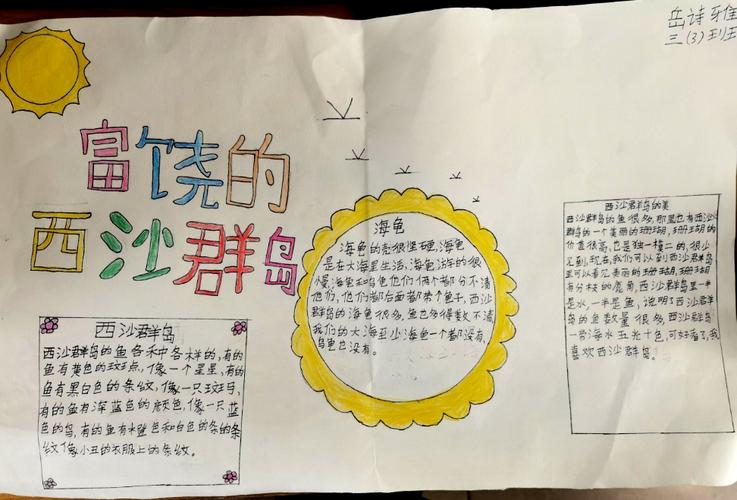 岳诗雅
三(3)班
富饶的
西沙群岛
西沙群岛
西沙群岛的鱼各种各样的,有的
鱼有黄色的斑点,像一个星星,有的
鱼有黑白色的条纹,像一只斑马,
有的鱼有深蓝色的颜色,像一只蓝
色的鸟,有的鱼有橙色和白色的条的条
纹像小丑的衣服上的条纹。
海龟
海龟的壳很坚硬,海龟
是在大海里生活,海龟游的很
慢,海龟和乌龟他们俩个都分不清
他们,他们都后面都带个龟子,西沙
群岛的海龟很多,鱼也多得数不清
我们的大海至少海龟一个都没有,
乌龟也没有。
西沙群岛的美
西沙群岛的鱼很多,那里也有西沙
群岛的一个美丽的珊瑚,珊瑚的
价值很高,也是独一樘二的,很少
见到,现在,我们可以到西沙群岛
里可以看见美丽的珊瑚,珊瑚
有分枝的鹿角,西沙群岛里一半
是水,一半是鱼,说明了西沙群
岛的鱼数量很多,西沙群岛
一带海水五光十色,可好看了,我
喜欢西沙群岛。